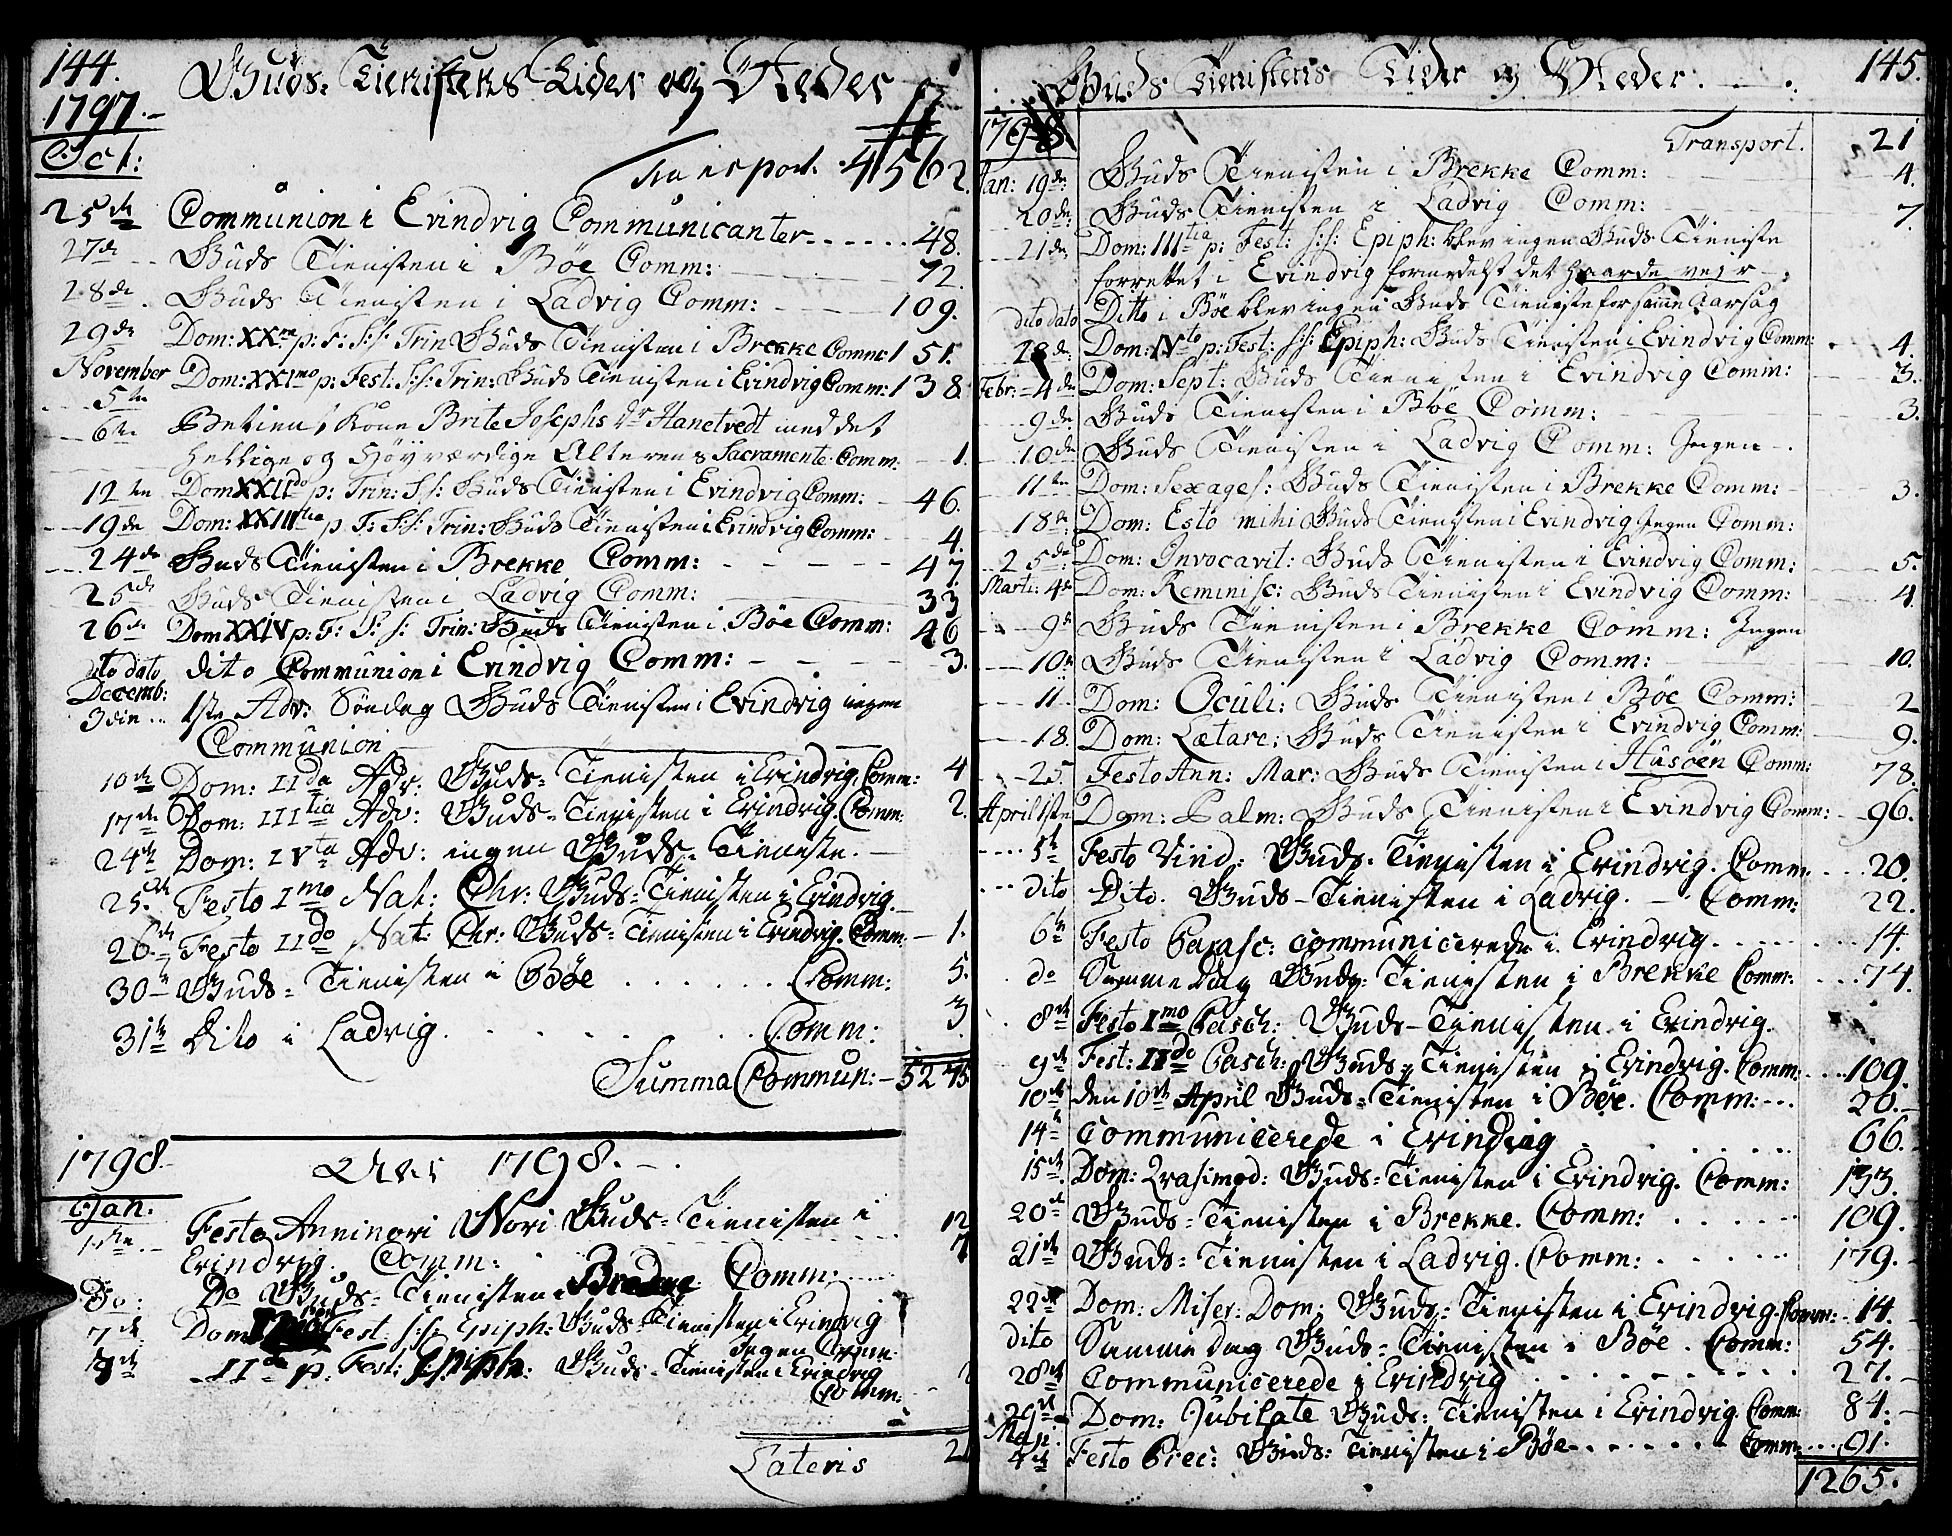 144.
Guds-Tienistens Tider og Steder
1797.
Oct:
Transport. 4562.
25de Communion i Evindvig Communicanter. 48.
27de Guds Tienisten i Böe Comm: 72.
28de Guds Tienisten i Ladvig Comm: 109.
29de Dom: XXma p: F: S:S: Trin Guds Tienisten i Brekke Comm: 151.
November Dom: XXImo p: Fest: S:S: Trin: Guds Tienisten i Evindvig Comm: 138.
5te
6te Betient Kone Brite Josephs dr Hanetvedt med det
Hellige og Höyværdige Alterens Sacramente Comm. 1.
12te Dom XXIIdo p: Trin: S:S: Guds Tienisten i Evindvig Comm: 46.
19de Dom: XXIIItia p F: S:S: Trin: Guds Tienisten i Evindvig Comm: 4.
24de Guds Tienisten i Brekke Comm: 47
25de Guds Tienisten i Ladvig Comm: 33
26de Dom XXIV p: F: S: S: Trin: Guds Tienisten i Böe Comm: 46
dito dato dito Communion i Evindvig Comm: 3.
Decemb:
3die 1ste Adv: Söndag Guds Tienisten i Evindvig ingen
Communion
10de Dom: IIda Adv: Guds-Tienisten i Evindvig. Comm: 4
17de Dom: IIItia Adv: Guds-Tienisten i Evindvig. Comm: 2.
24de Dom: IVta Adv: ingen Guds-Tieniste.
25de Festo Imo Nat: Chr: Guds-Tienisten i Evindvig.
26de Festo IIdo Nat: Chr: Guds-Tienisten i Evindvig. Comm: 1.
30te Guds-Tienisten i Böe Comm: 5.
31te Dito i Ladvig. Comm: 3
Summa Commun: 5275
1798. Aar 1798.
Jan.
1ste Festo Anni novi Guds-Tienisten i 12
Evindvig. Comm: 7
Do: Do Guds-Tienisten i Comm:
7de Dom: Fest: S:S: Epiph: Guds-Tienisten i Evindvig
Ingen Comm.
IIda p. Fest: Epiph: Guds-Tienisten i Evindvig
Comm:
Lateris 21
145.
Guds Tienistens Tider og Steder.
1798
Transport. 21
Jan: 19de Guds Tienisten i Brekke Comm: 4.
20de Guds Tienisten i Ladvig Comm: 7.
21de Dom: IIItia p: Fest: S:S: Epiph: blev ingen Guds Tieniste
forrettet i Evindvig formedelst det haarde vejr
dito dato Ditto i Böe blev ingen Guds Tieniste for samme Aarsag
28de Dom: IVto p: Fest: S:S: Epiph: Guds Tienisten i Evindvig Comm: 4.
Febr: 4de Dom: Sept: Guds Tienisten i Evindvig Comm: 3.
9de Guds Tienisten i Böe Comm: 3.
10de Guds Tienisten i Ladvig Comm: Ingen.
11te Dom: Sexages: Guds Tienisten i Brekke Comm: 3.
18de Dom: Esto mihi Guds Tienisten i Evindvig Ingen Comm:
25de Dom: Invocavit: Guds Tienisten i Evindvig Comm: 5.
Marti: 4de Dom: Reminisc: Guds Tienisten i Evindvig Comm: 4
9de Guds Tienisten i Brekke Comm: Ingen
10de Guds Tienisten i Ladvig Comm: 10.
11 Dom: Oculi: Guds Tienisten i Böe Comm: 2
18. Dom: Lætare: Guds Tienisten i Evindvig Comm: 9.
25. Festo Ann: Mar: Guds Tienisten i Husöen Comm: 78.
April 1ste Dom: Palm: Guds Tienisten i Evindvig Comm: 96.
5te Festo Virid: Guds-Tienisten i Evindvig. Comm. 20.
dito Dito. Guds-Tienisten i Ladvig. Comm: 22.
6te Festo Parasc: communicerede i Evindvig. 14.
do Samme Dag Guds-Tienisten i Brekke Comm: 74.
8de Festo Imo Pasch: Guds-Tienisten i Evindvig.
9de Fest: IIdo Pasch: Guds-Tienisten i Evindvig. Comm: 109.
10de den 10de April Guds-Tienisten i Böe. Comm: 20.
14de Communicerede i Evindvig 66.
15de Dom: Qvasimod: Guds-Tienisten i Evindvig. Comm: 133.
20de Guds-Tienisten i Brekke. Comm: 109.
21de Guds-Tienisten i Ladvig. Comm: 179.
22de Dom: Miser: Dom: Guds-Tienisten i Evindvig. Comm: 14.
dito Samme Dag Guds-Tienisten i Böe. Comm: 54.
28de Communicerede i Evindvig 27.
29de Dom: Jubilate Guds-Tienisten i Evindvig. Comm: 84.
Maji.
4de Festo Prec: Guds-Tienisten i Böe Comm: 91.
1265.